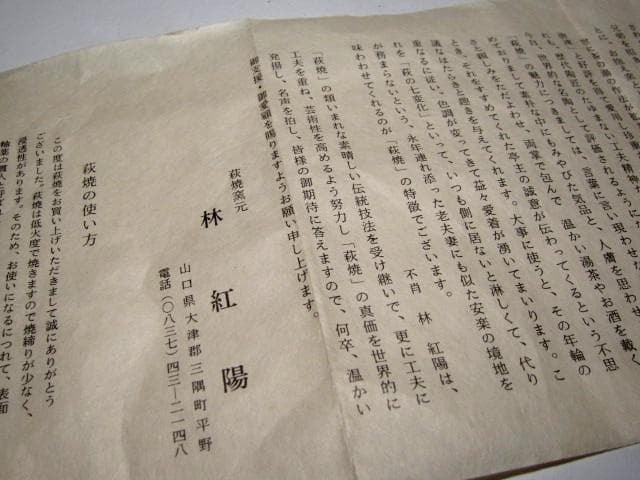 世に多
唐津」と世評を
世界的な名陶として評価されるように
今日、「萩焼」の魅力につきましては、言葉に言い現わせ
めておりまして素朴な中にもみやびた気品と、人膚を思わせ
さと親しみをただよわせ、両掌で包んで　温かい湯茶やお酒を戴く
とき、それをすすめてくれた亭主の誠意が伝わってくるという不思
議なはたらきと趣きを与えてくれます。大事に使うと、その年輪の
重なるに従い、色調が変ってきて益々愛着が湧いてまいります。こ
れを「萩の七変化」といって、いつも側に居ないと淋しくて、代り
が務まらないという、永年連れ添った老夫妻にも似た安楽の境地を
味わわせてくれるのが「萩焼」の特徴でございます。
不肖　林　紅陽は、
「萩焼」の類いまれな素晴しい伝統技法を受け継いで、更に工夫に
工夫を重ね、芸術性を高めるよう努力し「萩焼」の真価を世界的に
発揚し、名声を拍し、皆様の御期待に答えますので、何卒、温かい
御支援・御愛顧を賜りますようお願い申し上げます。
萩焼窯元
林　紅陽
山口県大津郡三隅町平野
電話（〇八三七）四三―二一四八
萩焼の使い方
この度は萩焼をお買い上げいただきまして誠にありがとう
ございました。萩焼は低火度で焼きますので焼締りが少なく、
浸透性があります。そのため、お使いになるにつれて、表面